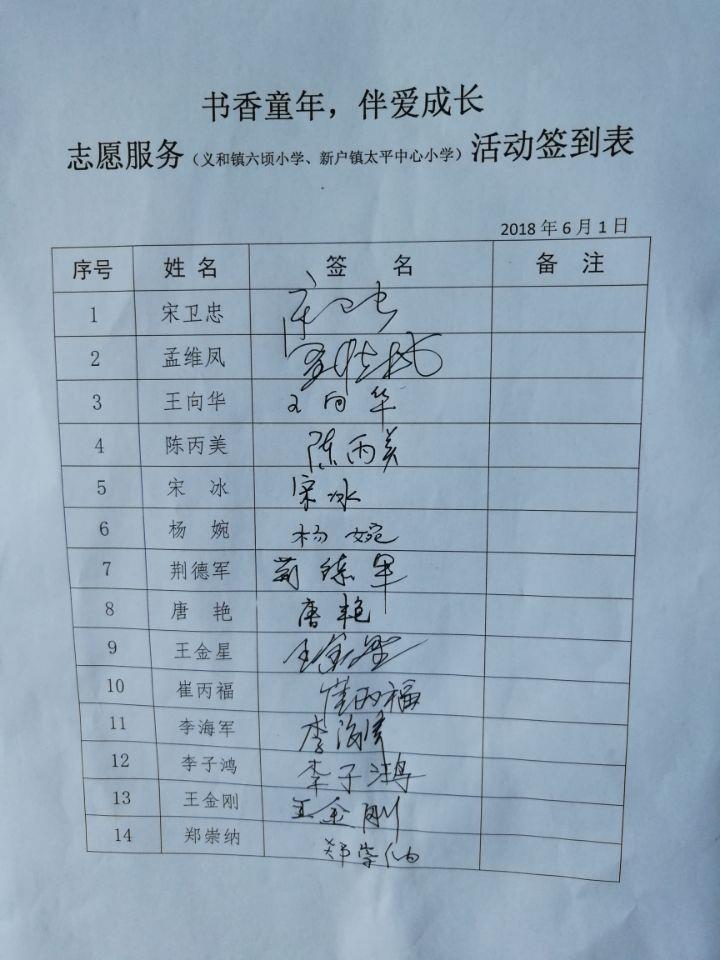 书香童年，伴爱成长
志愿服务（义和镇六顷小学、新户镇太平中心小学）活动签到表
2018 年 6 月 1 日
序号 姓 名 签 名 备 注
1 宋卫忠 宋卫忠
2 孟维凤 孟维凤
3 王向华 王向华
4 陈丙美 陈丙美
5 宋 冰 宋冰
6 杨 婉 杨婉
7 荆德军 荆德军
8 唐 艳 唐艳
9 王金星 王金星
10 崔丙福 崔丙福
11 李海军 李海军
12 李子鸿 李子鸿
13 王金刚 王金刚
14 郑崇纳 郑崇纳